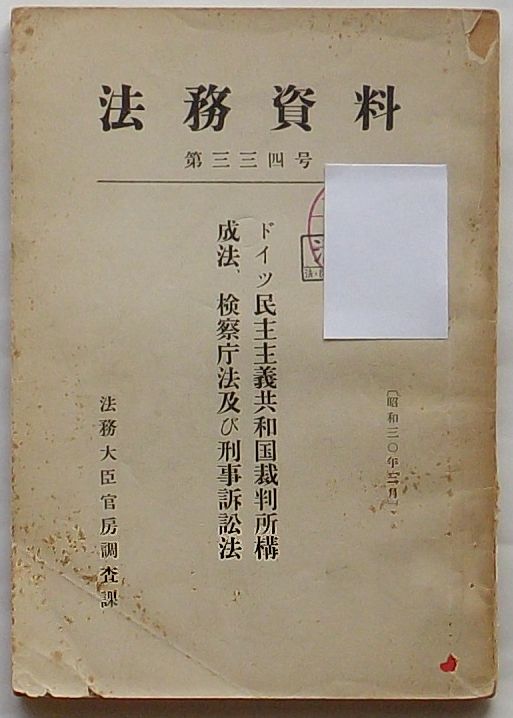 法務資料
第三三四号
〔昭和三〇年三月〕
ドイツ民主主義共和国裁判所構
成法、検察庁法及び刑事訴訟法
法務大臣官房調査課